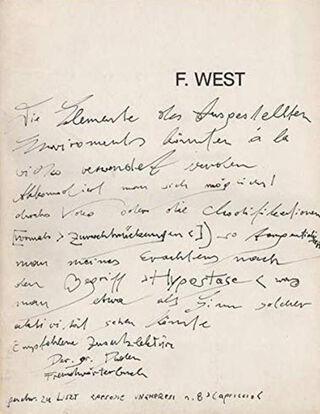 F. WEST
Die Elemente des Ausgestellten
Enviroments könnten à la
video verwendet werden
Akkomodiert man sich möglichst
durchs Video oder die Chotifikationen
[vormals > Zurechtrückungen <]) so
man meines Erachtens nach
den Begriff > Hypostase < was
man etwa als Sinn solcher
aktivität sehen könnte
Empfohlene Zusatzlektüre
Das gr. Duden
Fremdwörterbuch
geschr. zu LISZT RAPSODIE UNGHERESI n. 8 > Capriccio <